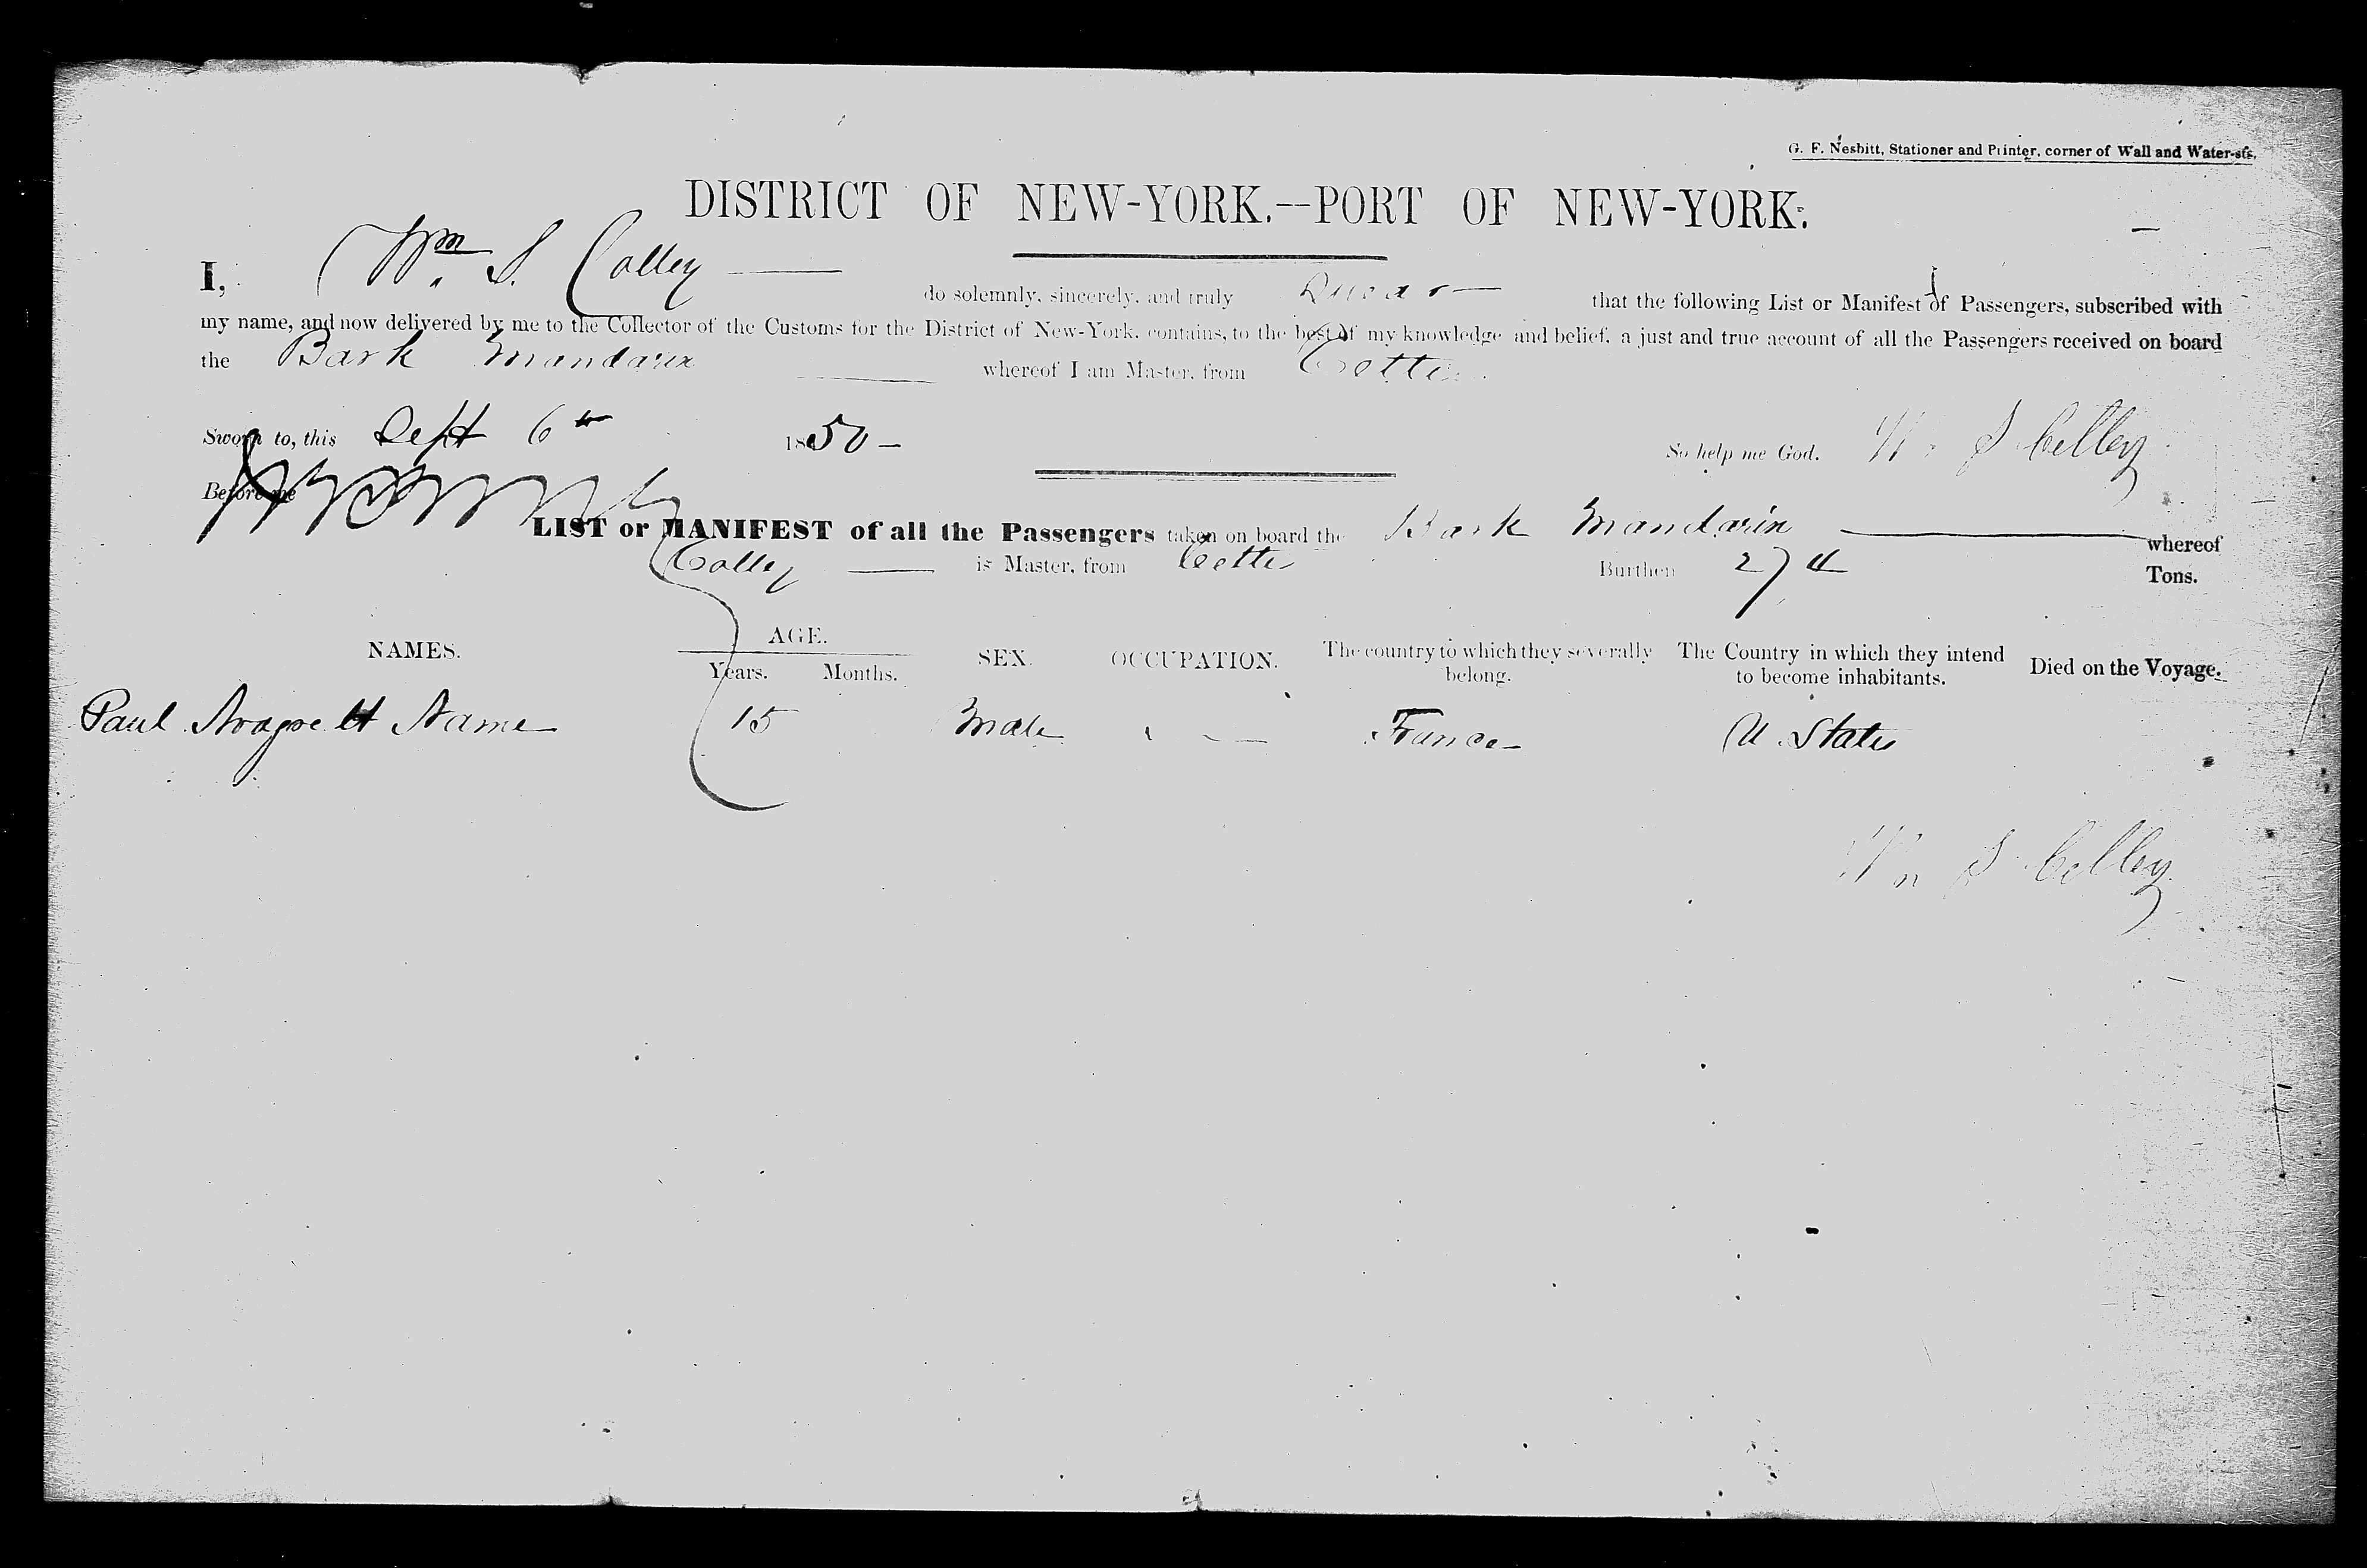 G. F. Nesbitt, Stationer and Printer, corner of Wall and Water-sts.
DISTRICT OF NEW-YORK.--PORT OF NEW-YORK.
I, Wm. S. Colley do solemnly, sincerely, and truly Swear that the following List or Manifest of Passengers, subscribed with
my name, and now delivered by me to the Collector of the Customs for the District of New-York, contains, to the best of my knowledge and belief, a just and true account of all the Passengers received on board
the Bark Mandarin whereof I am Master, from Cette
Sworn to, this Sept 6th 1850 - So help me God. Wm S Colley
Before me
LIST or MANIFEST of all the Passengers taken on board the Bark Mandarin whereof
Colley is Master, from Cette Burthen 274 Tons.
NAMES. AGE. SEX. OCCUPATION. The country to which they severally belong. The Country in which they intend to become inhabitants. Died on the Voyage.
Years. Months.
Paul 15 Male France U. States
Wm S Colley